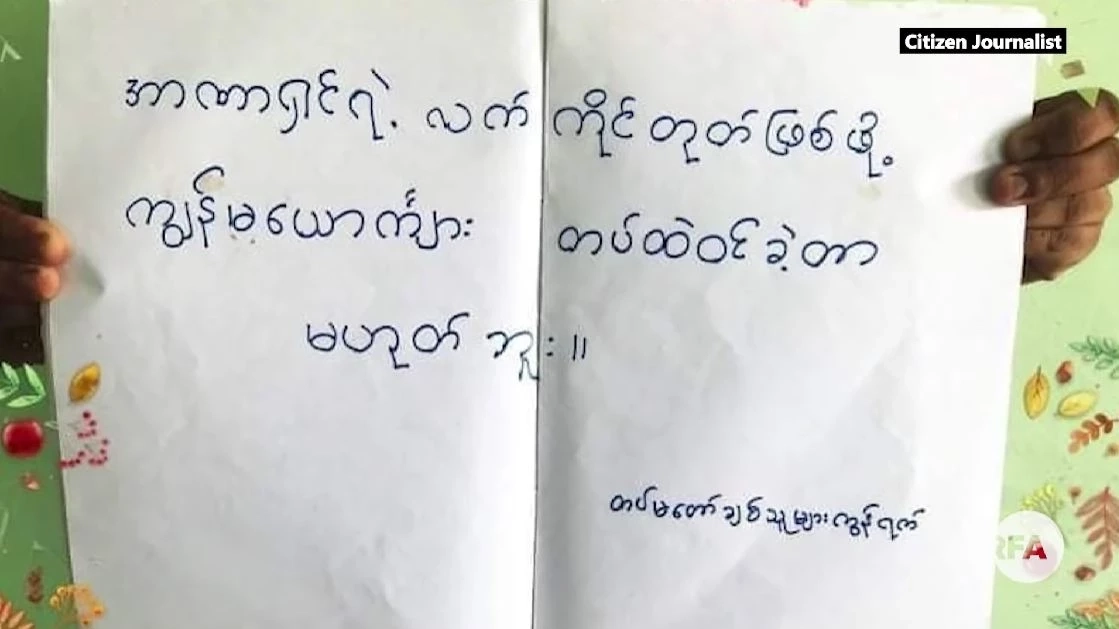 Citizen Journalist
အာဏာရှင်ရဲ့ လက်ကိုင်တုတ်ဖြစ်ဖို့
ကျွန်မယောင်္ကျား တပ်ထဲဝင်ခဲ့တာ
မဟုတ်ဘူး။
တပ်မတော်ချစ်သူများကွန်ရက်
RFA